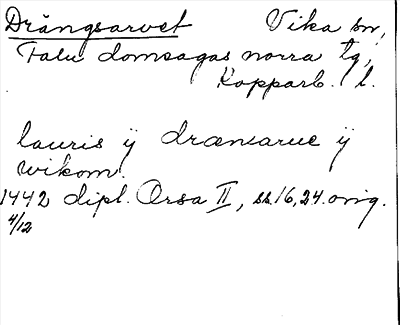 Drängsarvet Vika sn,
Falu domsagas norra tg,
Kopparb. l.
lauris ij drænsarue ij
wikom.
1442 dipl. Orsa II, ss. 16, 24. orig.
4/12